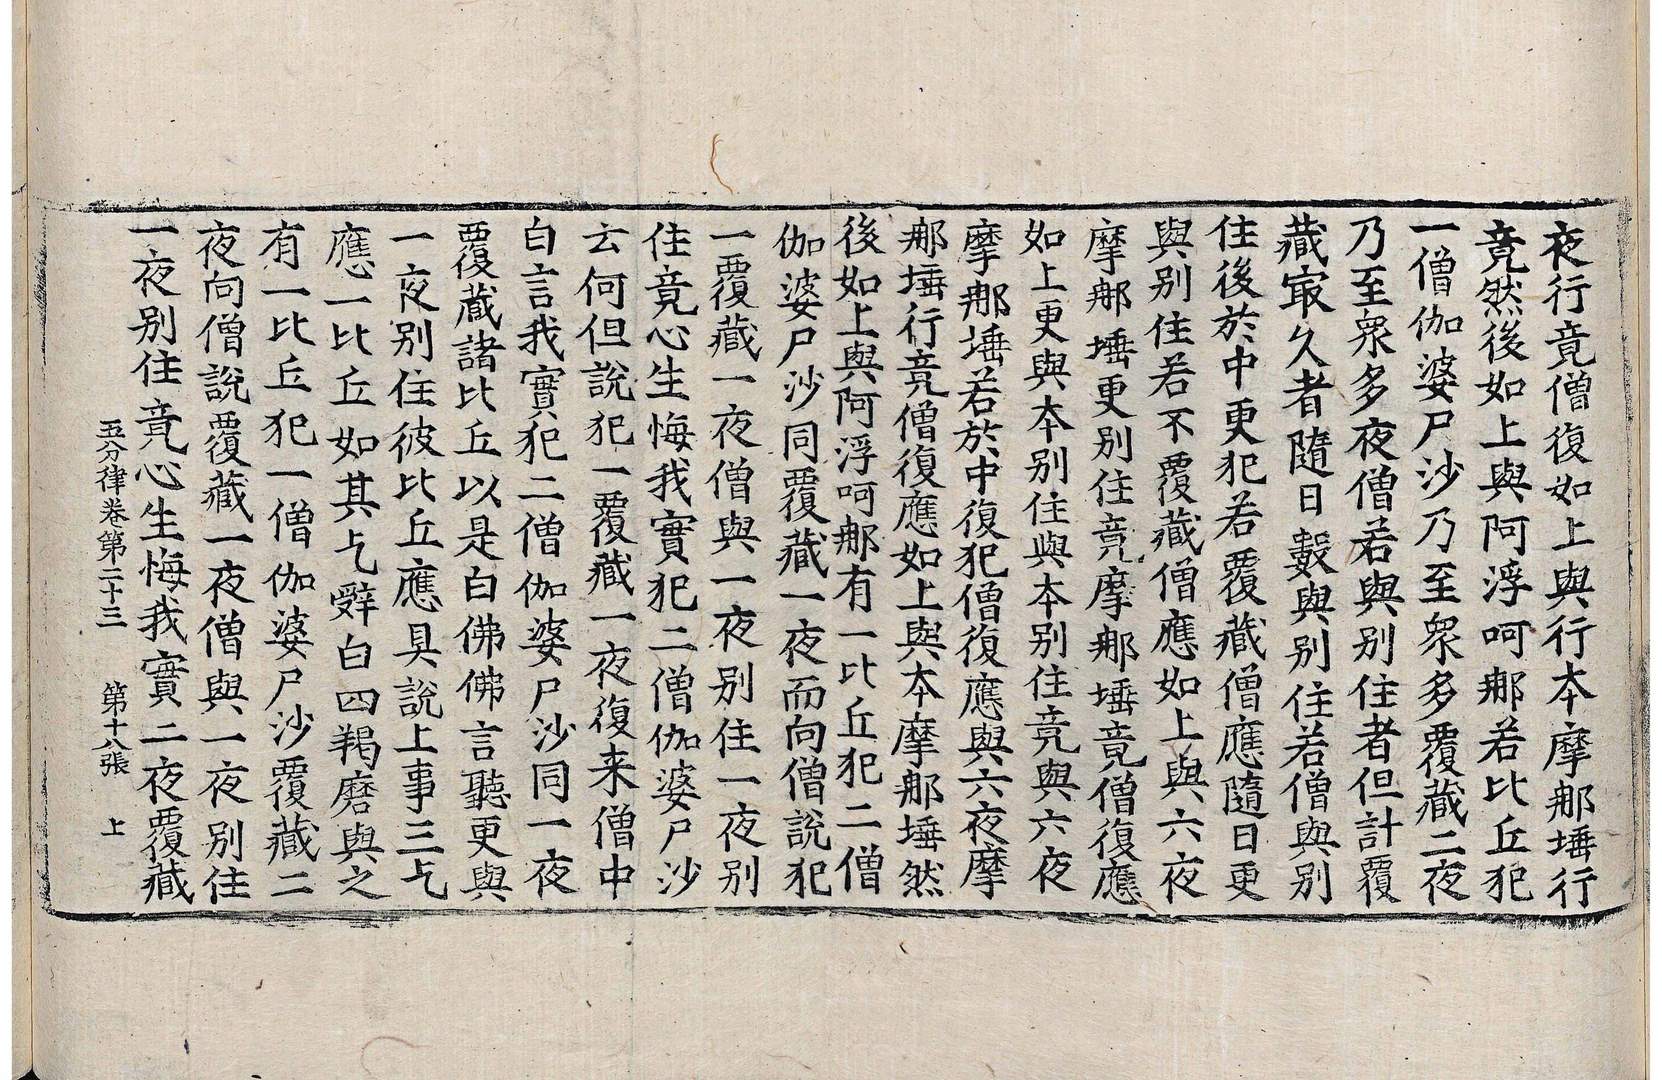 夜行竟僧復如上與行本摩那埵行
竟然後如上與阿浮呵那若比丘犯
一僧伽婆尸沙乃至衆多覆藏二夜
乃至衆多夜僧若與別住者但計覆
藏冣久者隨日數與別住若僧與別
住後於中更犯若覆藏僧應隨日更
與別住若不覆藏僧應如上與六夜
摩那埵更別住竟摩那埵竟僧復應
如上更與本別住與本別住竟與六夜
摩那埵若於中復犯僧復應與六夜摩
那埵行竟僧復應如上與本摩那埵然
後如上與阿浮呵那有一比丘犯二僧
伽婆尸沙同覆藏一夜而向僧說犯
一覆藏一夜僧與一夜別住一夜別
住竟心生悔我實犯二僧伽婆尸沙
云何但說犯一覆藏一夜復来僧中
白言我實犯二僧伽婆尸沙同一夜
覆藏諸比丘以是白佛佛言聽更與
一夜別住彼比丘應具說上事三乞
應一比丘如其乞辤白四羯磨與之
有一比丘犯一僧伽婆尸沙覆藏二
夜向僧說覆藏一夜僧與一夜別住
一夜別住竟心生悔我實二夜覆藏
五分律卷第二十三 第十八張 上